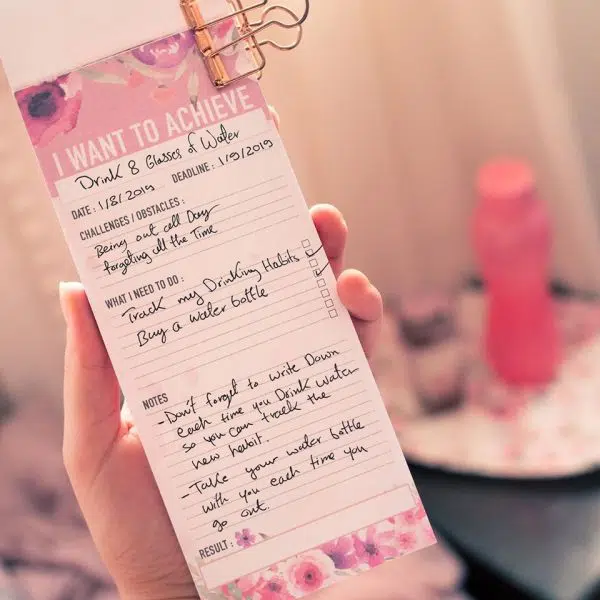 I WANT TO ACHIEVE
Drink 8 Glasses of Water
DATE : 1/8/2019 DEADLINE : 1/9/2019
CHALLENGES / OBSTACLES :
Being out all Day
forgeting all the Time
WHAT I NEED TO DO :
Track my Drinking Habits
Buy a water bottle
NOTES
-Don't forget to write Down
each time you Drink water
so you can track the
new habit.
-Take your water bottle
with you each time you
go out.
RESULT :